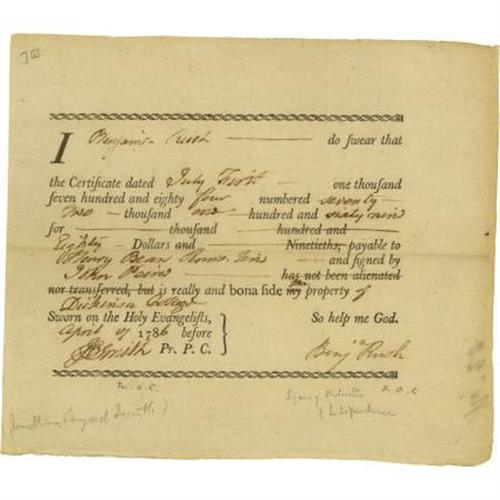 I Benjamin Rush do swear that
the Certificate dated July First one thousand
seven hundred and eighty four numbered seventy
two thousand one hundred and sixty nine
for thousand hundred and
Eighty Dollars and Ninetieths, payable to
Henry Bean and signed by
has not been alienated
nor transferred, but is really and bona fide the property of
Dickinson College
Sworn on the Holy Evangelists, So help me God.
April 17 1786 before
JBSmith Pr. P. C. Benja Rush
(Jonathan Bayard Smith)